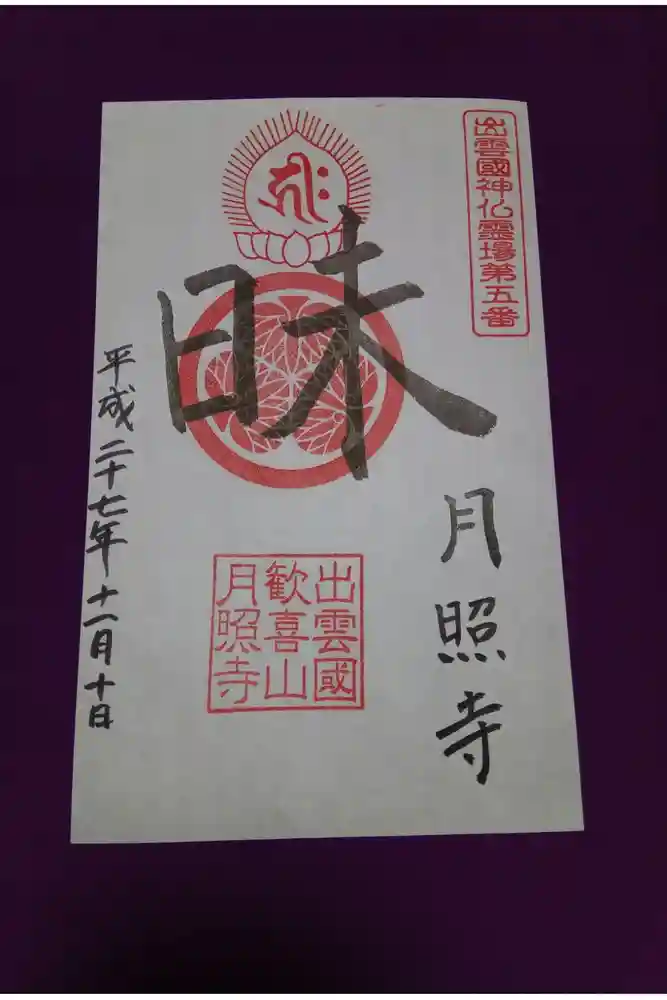 出雲國神仏霊場第五番
月照寺
ह्रीः
昧
出雲國
歓喜山
月照寺
平成二十七年十一月十日